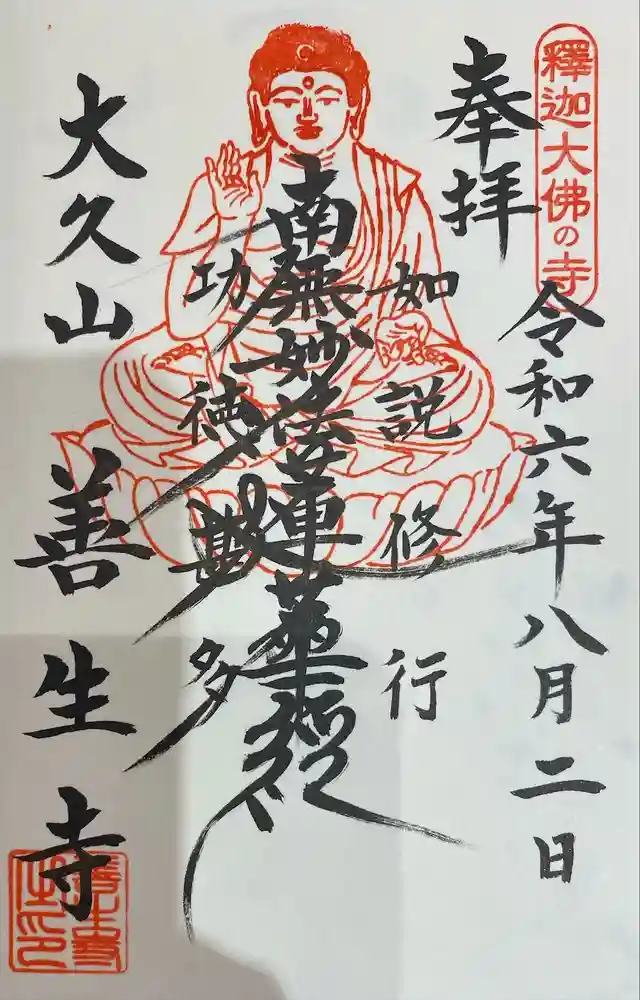 釋迦大佛の寺
奉拝
令和六年八月二日
如説修行
南無妙法蓮華経
功徳甚多
大久山
善生寺
善生寺之印